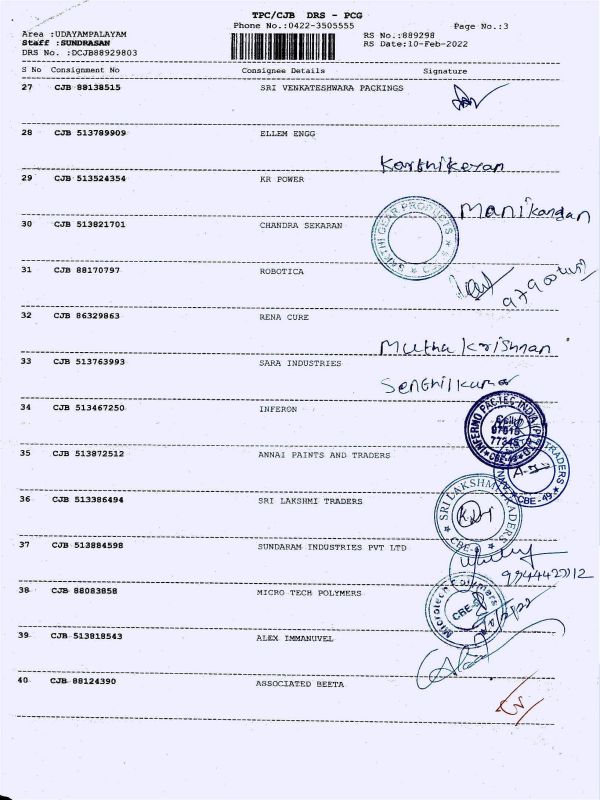 TPC/CJB DRS - PCG
Phone No.:0422-3505555 Page No.:3
Area :UDAYAMPALAYAM RS No.:889298
Staff :SUNDRASAN RS Date:10-Feb-2022
DRS No. :DCJB88929803
S No Consignment No Consignee Details Signature
27 CJB 88138515 SRI VENKATESHWARA PACKINGS
28 CJB 513789909 ELLEM ENGG
Karthikeyan
29 CJB 513524354 KR POWER
Manikandan
30 CJB 513821701 CHANDRA SEKARAN
SAKTHI GEAR PRODUCTS
31 CJB 88170797 ROBOTICA
32 CJB 86329863 RENA CURE
Muthu Krishnan
33 CJB 513763993 SARA INDUSTRIES
Senthilkumar
34 CJB 513467250 INFERON
INFERNO PAC-TEC INDIA (P) LTD
CBE-49
35 CJB 513872512 ANNAI PAINTS AND TRADERS
TRADERS
CBE-49
36 CJB 513386494 SRI LAKSHMI TRADERS
SRI LAKSHMI TRADERS
37 CJB 513884598 SUNDARAM INDUSTRIES PVT LTD
38 CJB 88083858 MICRO TECH POLYMERS
Microtech Polymers
39 CJB 513818543 ALEX IMMANUVEL
40 CJB 88124390 ASSOCIATED BEETA